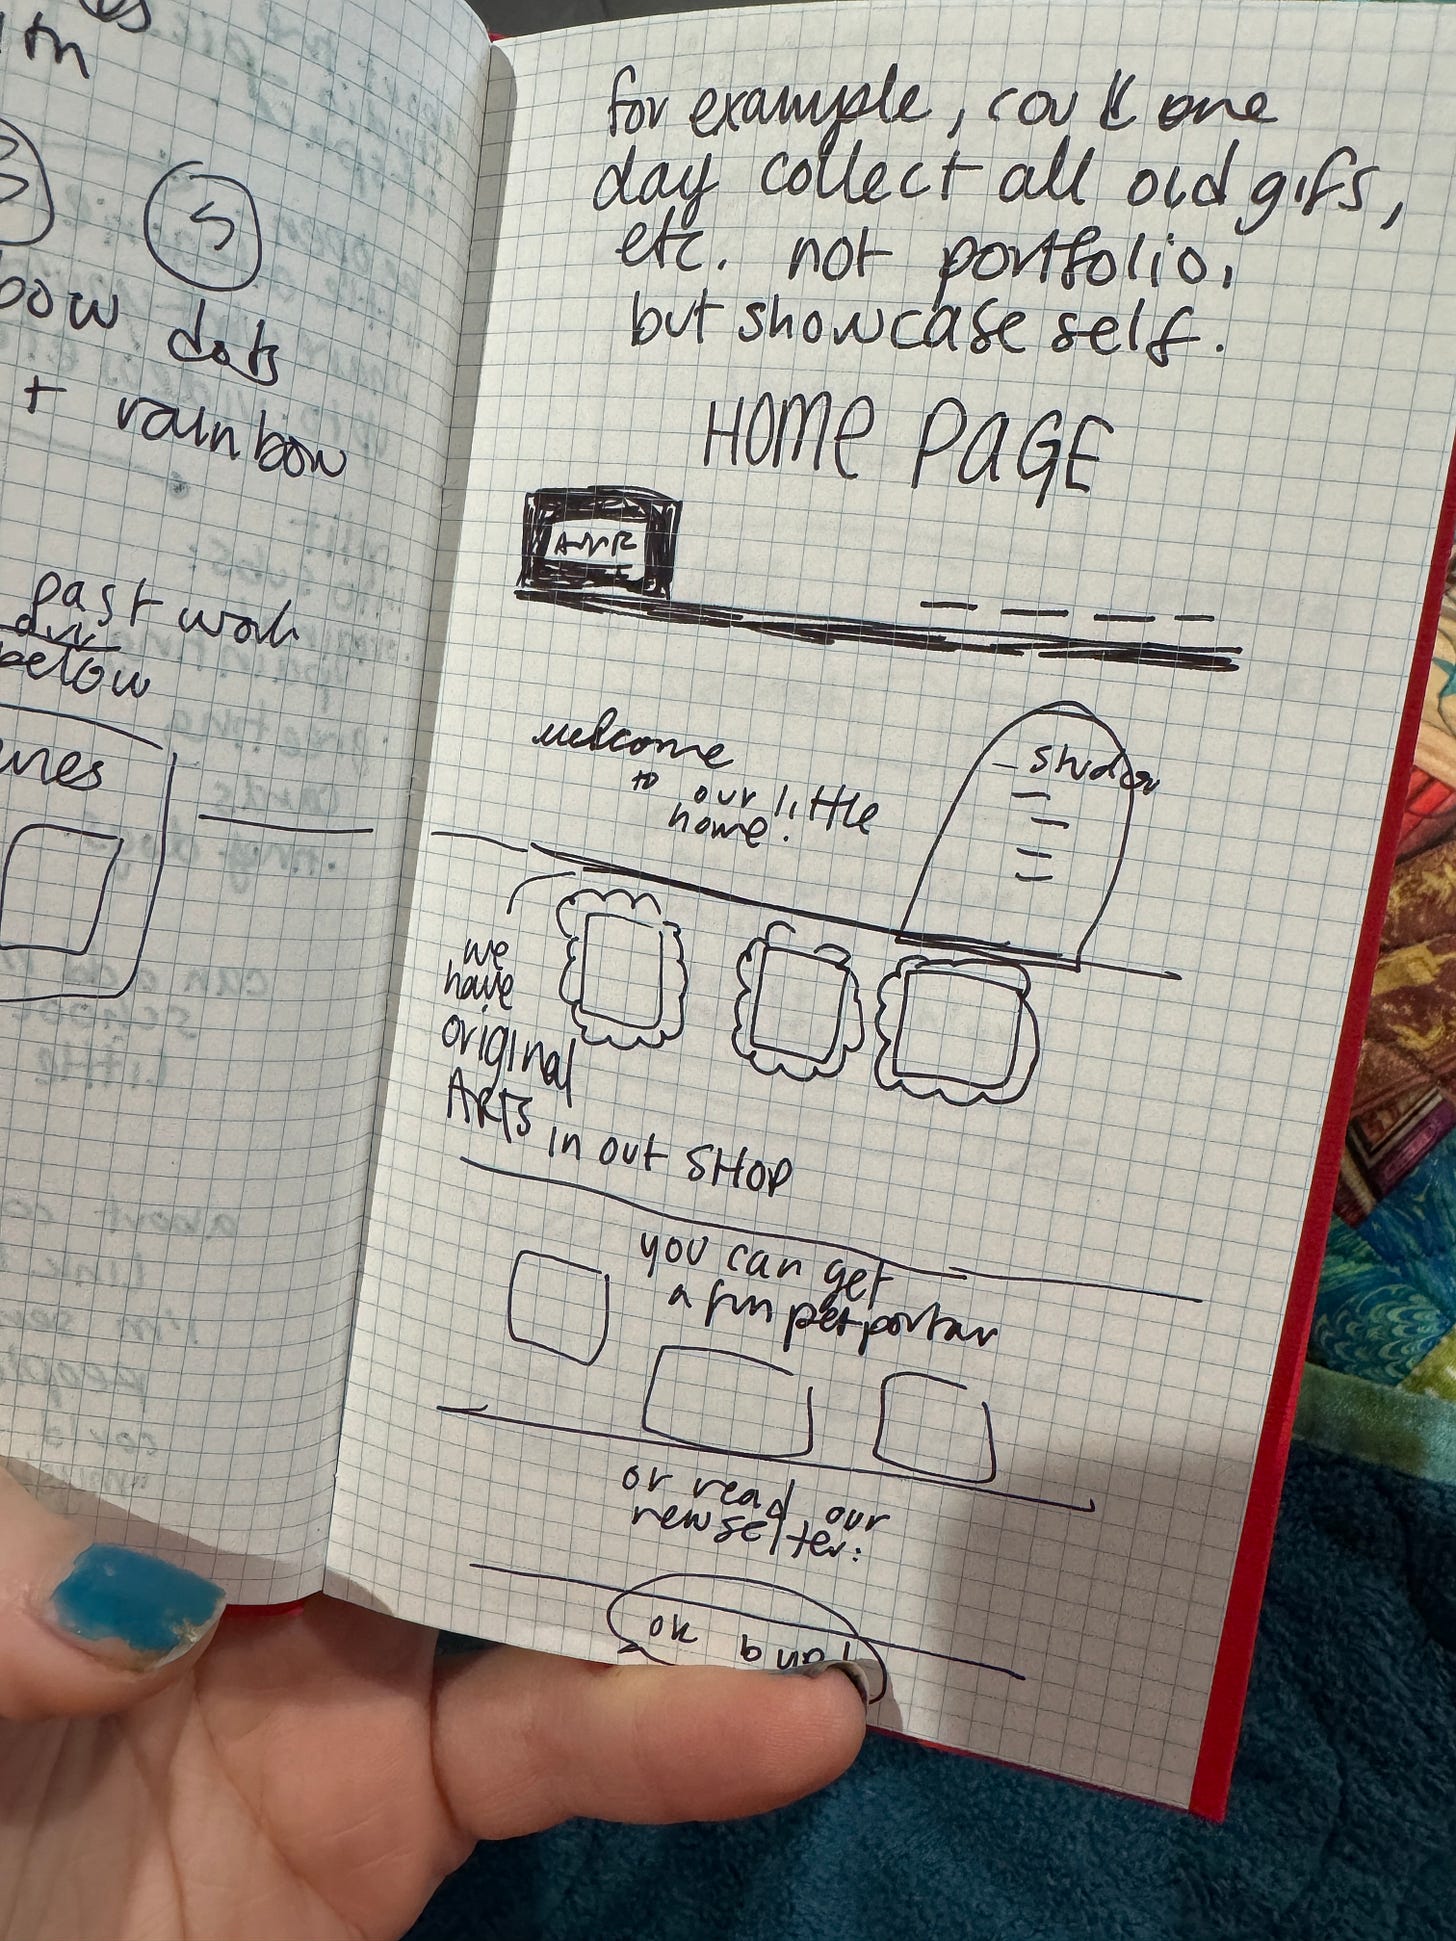 th
S
bow dots
+ rainbow
past work
below
for example, could one
day collect all old gifs,
etc. not portfolio,
but showcase self.
HOME PAGE
welcome
to our little
home!
we
have
original
ARTS in out SHOP
you can get
a fun pet portar
or read our
newselter:
ok